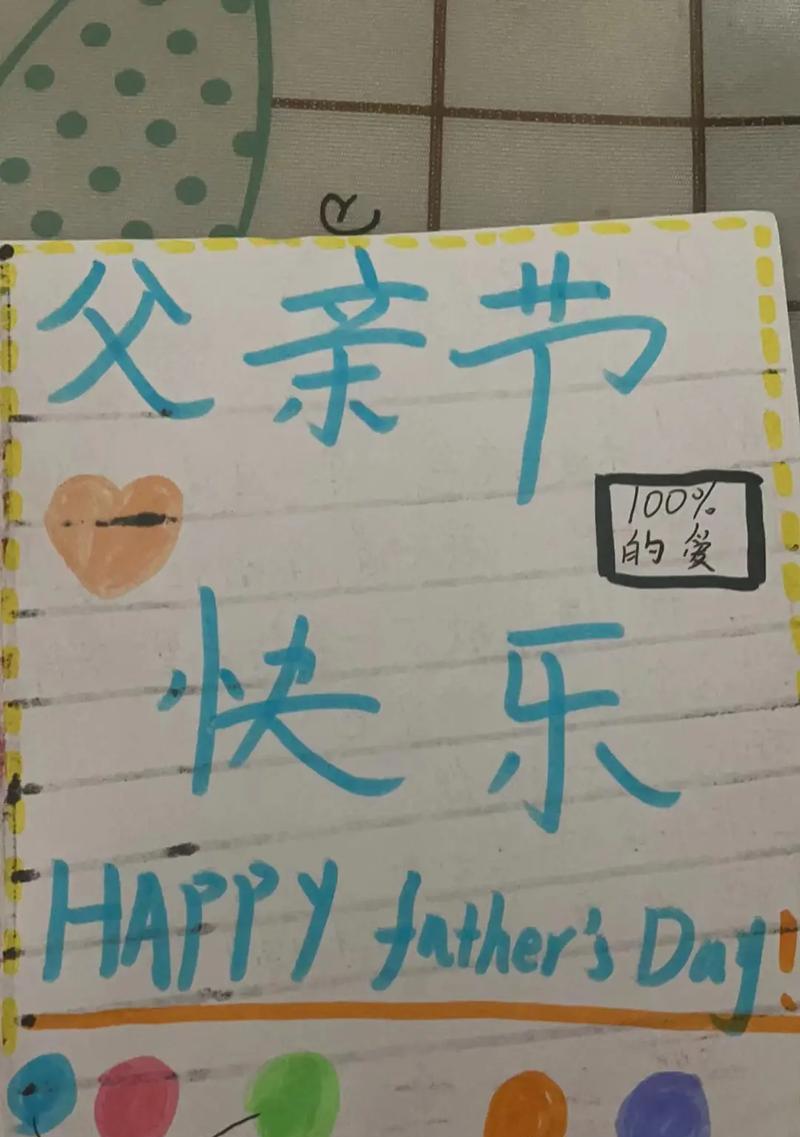 父亲节
100%
的爱
快乐
HAPPY father's Day!